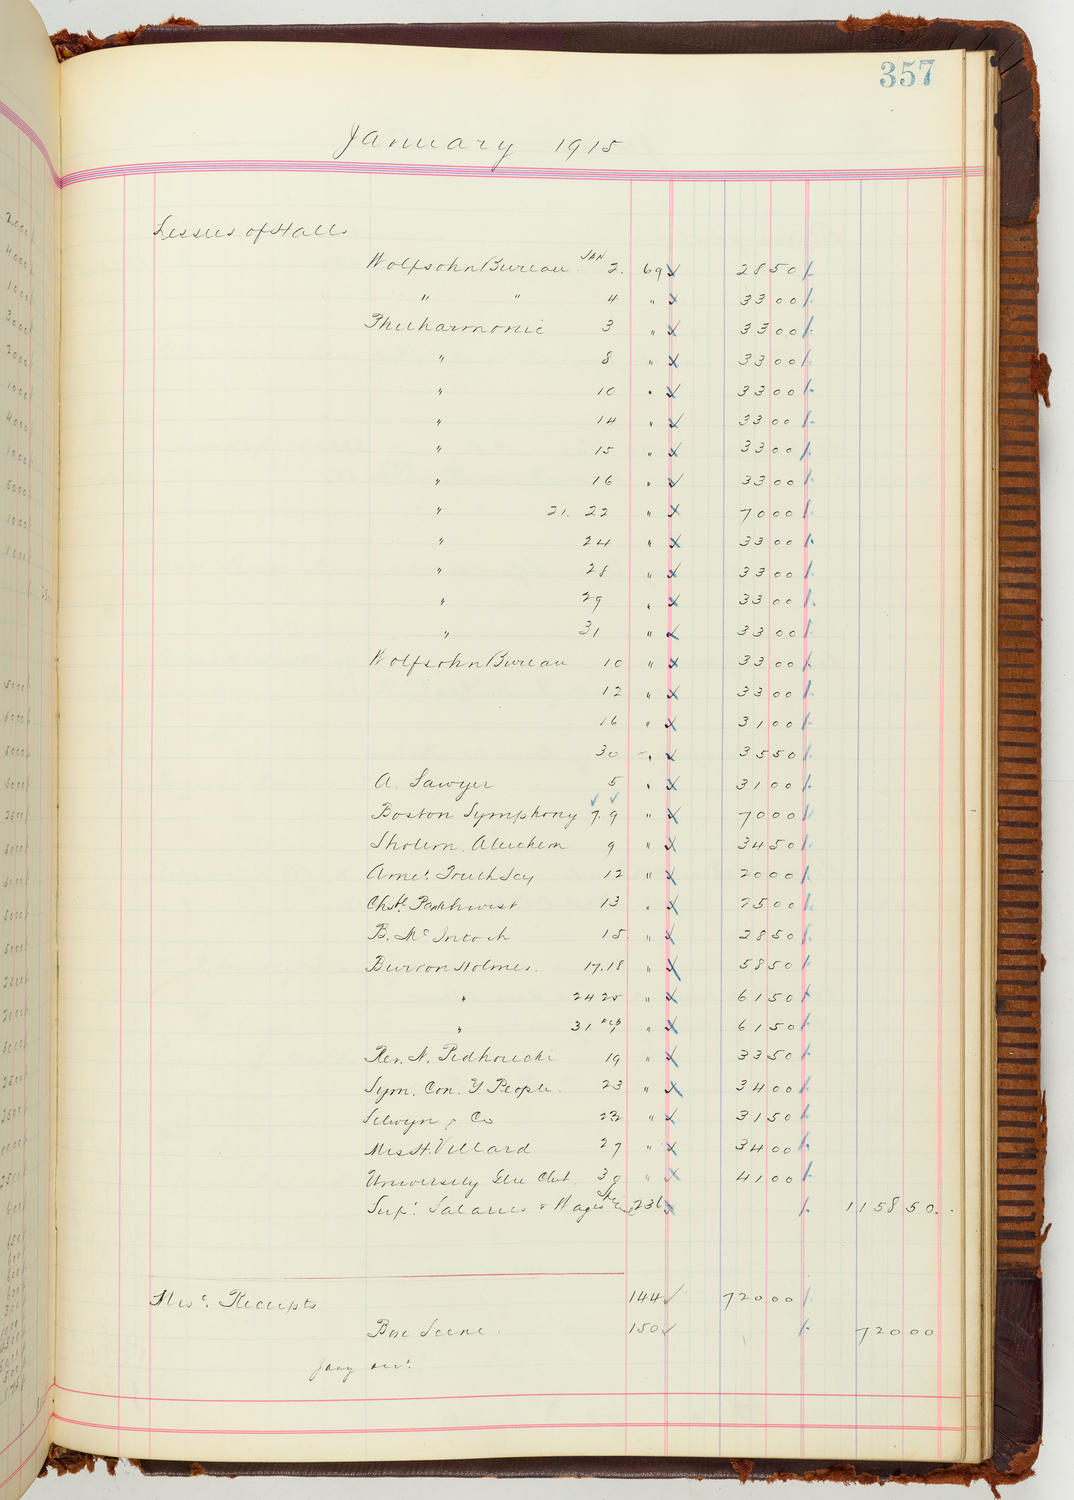 357
January 1915
Lessees of Halls
Wolfsohn Bureau JAN 2. 69 2850
" " 4 " 3300
Philharmonic 3 " 3300
" 8 " 3300
" 10 " 3300
" 14 " 3300
" 15 " 3300
" 16 " 3300
" 21. 22 " 7000
" 24 " 3300
" 28 " 3300
" 29 " 3300
" 31 " 3300
Wolfsohn Bureau 10 " 3300
12 " 3300
16 " 3100
30 " 3550
A. Sawyer 5 " 3100
Boston Symphony 7. 9 " 7000
Sholem. Aleichem 9 " 3450
Amc. Truth Scy 12 " 2000
Chs H. Parkhurst 13 " 2500
B. McIntosh 15 " 2850
Burton Holmes. 17.18 " 5850
" 24 25 " 6150
" 31 Feb 1 " 6150
Rev. N. Pedhorecki 19 " 3350
Sym. Con. Y. People. 23 " 3400
Selwyn & Co 23 " 3150
Mrs H. Villard 27 " 3400
University Glee Club. 30 " 4100
Sup. Salaries & Wages 236 115850.
Misc. Receipts 144 72000
Box Scene. 150 72000
Jany